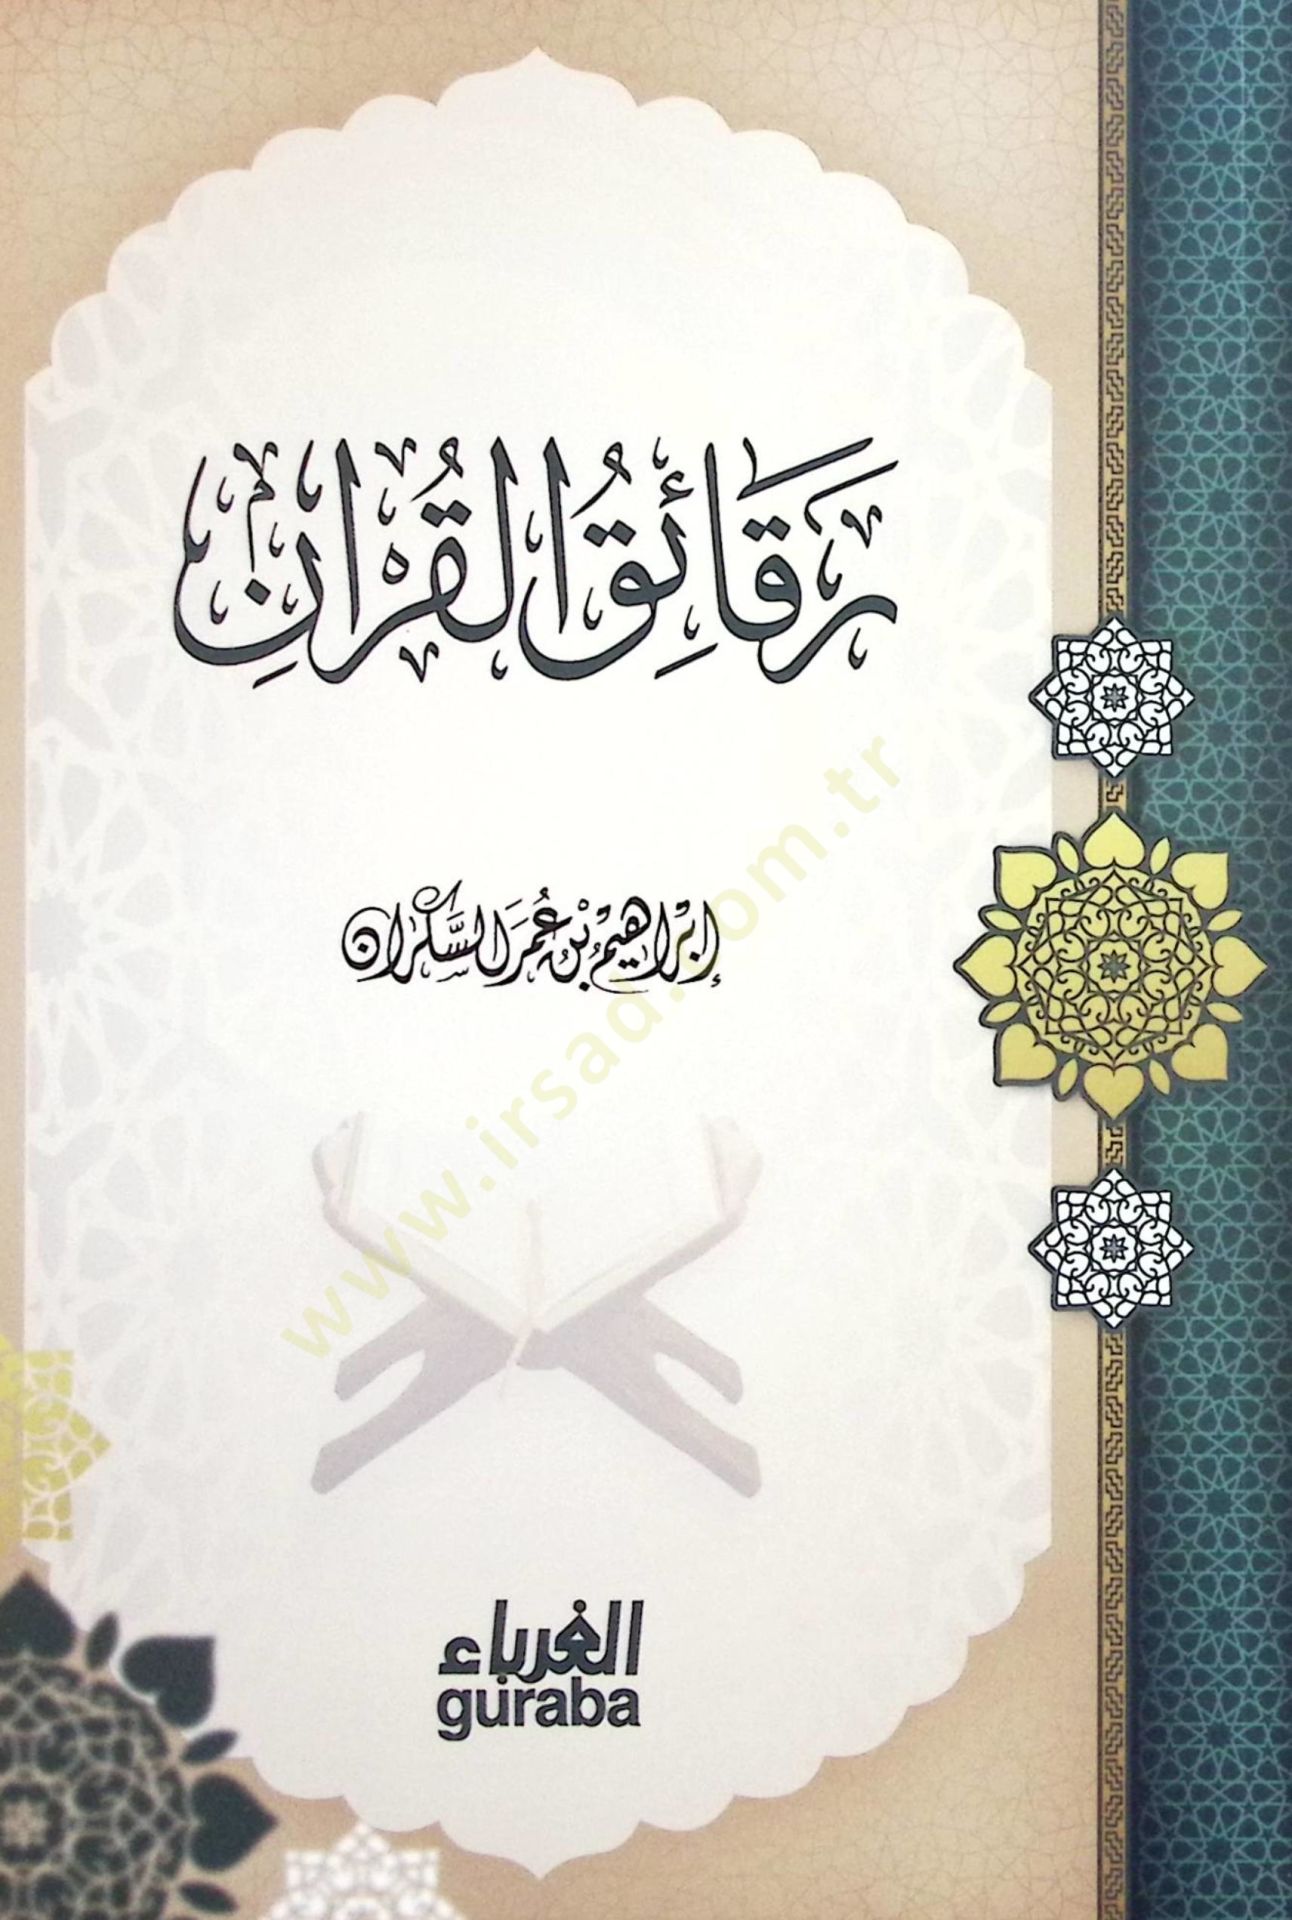 رَقَائِقُ القُرْآنِ
إِبْرَاهِيمُ بْنُ عُمَرَ السَّكْرَان
www.irsad.com.tr
الغرباء
guraba